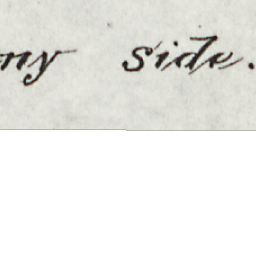 ny side.